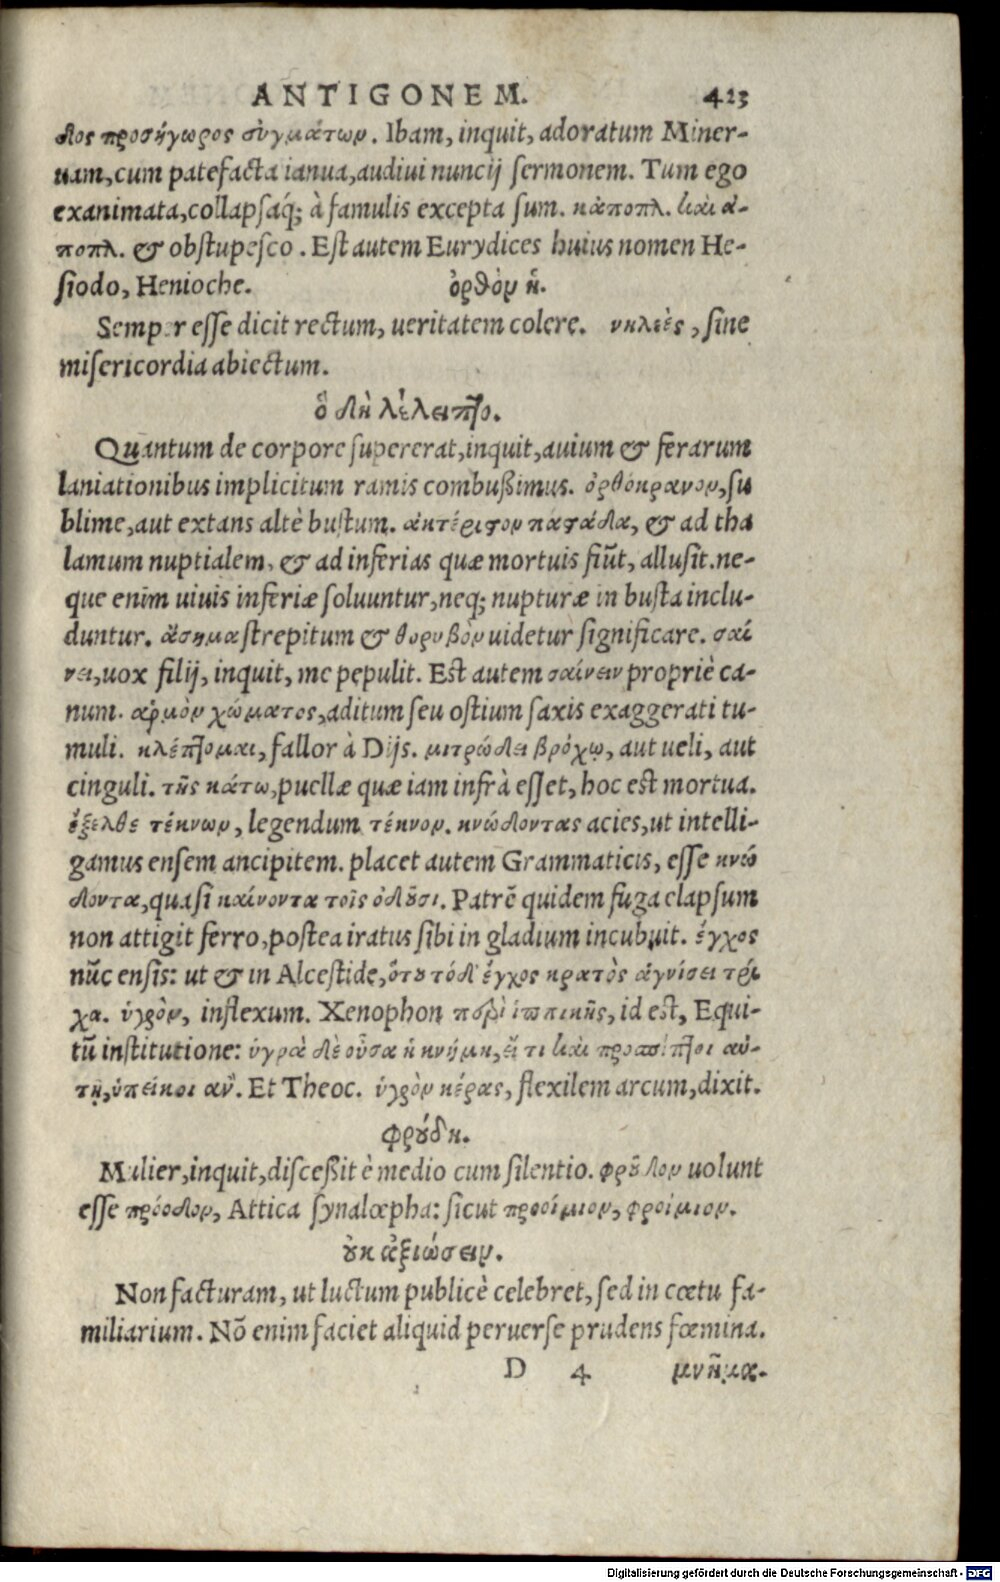 ANTIGONEM. 423
δος προσήγωρος συγμάτων. Ibam, inquit, adoratum Miner-
uam, cum patefacta ianua, audiui nuncij ſermonem. Tum ego
exanimata, collapſaq́; à famulis excepta ſum. κἀποπλ. καὶ ἀ-
ποπλ. & obſtupeſco. Eſt autem Eurydices huius nomen He-
ſiodo, Henioche. ὀρθὸν ἡ.
Semper eſſe dicit rectum, ueritatem colere. νηλεὲς, ſine
miſericordia abiectum.
ὃ δὴ λέλειπτο.
Quantum de corpore ſupererat, inquit, auium & ferarum
laniationibus implicitum ramis combußimus. ὀρθόκρανον, ſu
blime, aut extans altè buſtum. ἀκτέριστον παστάδα, & ad tha
lamum nuptialem, & ad inferias quæ mortuis fiũt, alluſit. ne-
que enim uiuis inferiæ ſoluuntur, neq; nupturæ in buſta inclu-
duntur. ἄσημα ſtrepitum & θορυβὸν uidetur ſignificare. σαί
νει, uox filij, inquit, me pepulit. Eſt autem σαίνειν propriè ca-
num. ἁρμὸν χώματος, aditum ſeu oſtium ſaxis exaggerati tu-
muli. κλέπτομαι, fallor à Dijs. μιτρώδει βρόχῳ, aut ueli, aut
cinguli. τῆς κάτω, puellæ quæ iam infrà eſſet, hoc eſt mortua.
ἔξελθε τέκνωον, legendum τέκνον. κνώδοντας acies, ut intelli-
gamus enſem ancipitem. placet autem Grammaticis, eſſe κνώ
δοντα, quaſi καίνοντα τοῖς ὀδοῦσι. Patrẽ quidem fuga elapſum
non attigit ferro, poſtea iratus ſibi in gladium incubuit. ἔγχος
nũc enſis: ut & in Alceſtide, ὅτου τόδ' ἔγχος κρατὸς ἁγνίσει τρί
χα. ὑγρὸν, inflexum. Xenophon περὶ ἱππικῆς, id eſt, Equi-
tũ inſtitutione: ὑγρὰ δὲ οὖσα ἡ κνήμη, εἴ τι καὶ προσπίπτοι αὐ-
τῇ, ὑπείκοι ἂν. Et Theoc. ὑγρὸν κέρας, flexilem arcum, dixit.
φρούδη.
Mulier, inquit, diſceßit è medio cum ſilentio. φροῦδον uolunt
eſſe πρόοδον, Attica ſynalœpha: ſicut προοίμιον, φροίμιον.
οὐκ ἀξιώσειν.
Non facturam, ut luctum publicè celebret, ſed in cœtu fa-
miliarium. Nõ enim faciet aliquid peruerſe prudens fœmina.
D 4 μνῆμα.
Digitalisierung gefördert durch die Deutsche Forschungsgemeinschaft - DFG